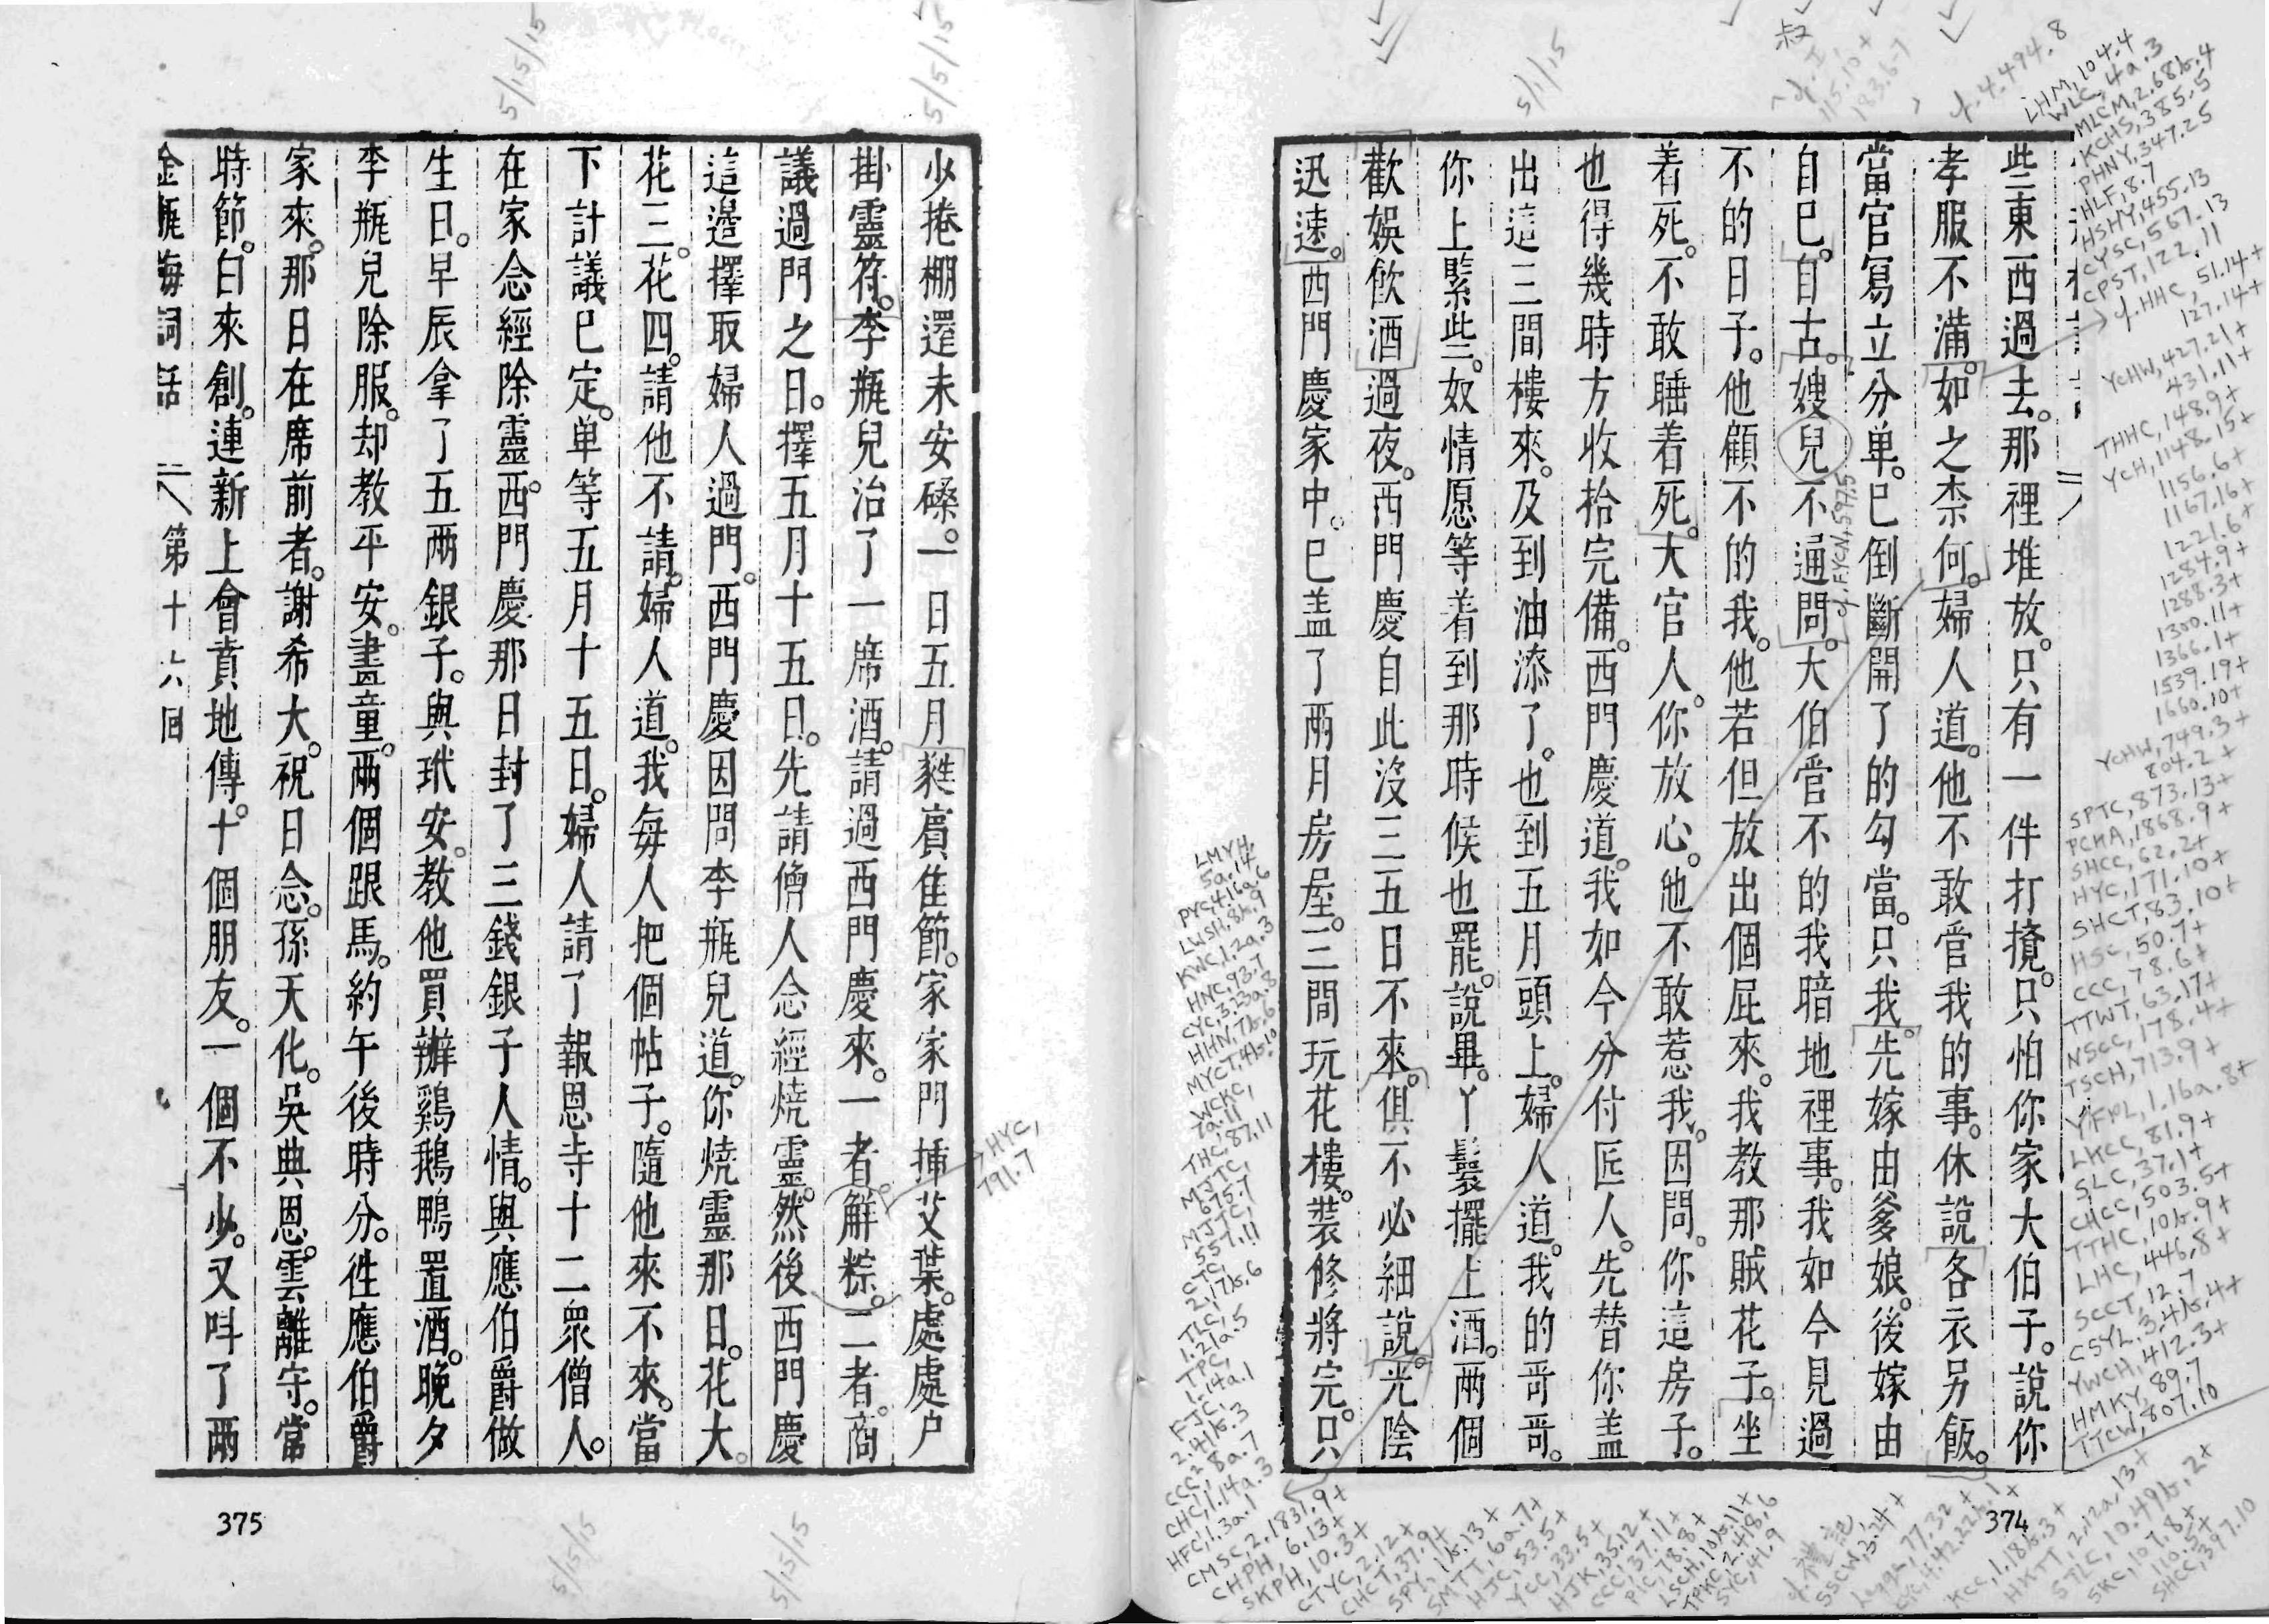 些東西過去。那裡堆放。只有一件打攪。只怕你家大伯子。說你
孝服不滿。如之柰何。婦人道。他不敢管我的事。休說各衣另飯。
當官寫立分单。已倒斷開了的勾當。只我。先嫁由爹娘。後嫁由
自巳。自古。嫂兒不通問。大伯管不的我暗地裡事。我如今見過
不的日子。他顧不的我。他若但放出個屁來。我教那賊花子。坐
着死。不敢睡着死。大官人。你放心。他不敢惹我。因問。你這房子。
也得幾時方收拾完備。西門慶道。我如今分付匠人。先替你盖
出這三間樓來。及到油漆了。也到五月頭上。婦人道。我的哥哥。
你上緊些。奴情愿等着到那時候也罷。說畢。丫鬟擺上酒。兩個
歡娛飲酒過夜。西門慶自此沒三五日不來。俱不必細說。光陰
迅速。西門慶家中。已盖了兩月房屋。三間玩花樓。裝修將完。只
少捲棚還未安磉。一日五月蕤賔佳節。家家門揷艾葉。處處户
掛靈符。李瓶兒治了一席酒。請過西門慶來。一者。解粽。二者。商
議過門之日。擇五月十五日。先請僧人念經燒靈。然後西門慶
這邉擇取婦人過門。西門慶因問李瓶兒道。你燒靈那日。花大。
花三。花四。請他不請。婦人道。我每人把個帖子。隨他來不來。當
下計議已定。单等五月十五日。婦人請了報恩寺十二衆僧人。
在家念經除靈。西門慶那日封了三錢銀子人情。與應伯爵做
生日。早辰拿了五兩銀子。與玳安。教他買辦鷄鵝鴨置酒。晚夕
李瓶兒除服。却教平安。畫童。兩個跟馬。約午後時分。徃應伯爵
家來。那日在席前者。謝希大。祝日念。孫天化。吳典恩。雲離守。當
時節。白來創。連新上會賁地傳。十個朋友。一個不少。又呌了兩
金瓶梅詞話 第十六回
374
375
5/1/15
5/15/15
5/15/15
5/15/15
5/15/15
叔
LHM, 104.4
WLC, 4a.3
MLCM, 2.68b.4
KCHS, 385.5
PHNY, 347.25
HLF, 8.7
HSHY, 455.13
CYSC, 567.13
CPST, 122.11
cf. HHC, 51.14+
127.14+
YCHW, 427.21+
431.11+
THHC, 148.9+
YCH, 1148.15+
1156.6+
1167.16+
1221.6+
1284.9+
1288.3+
1300.11+
1366.1+
1539.19+
1660.10+
YCHW, 749.3+
804.2+
SPTC, 873.13+
PCHA, 1868.9+
SHCC, 62.2+
HYC, 171.10+
SHCT, 83.10+
HSC, 50.7+
CCC, 78.6+
TTWT, 63.17+
NSCC, 178.4+
TSCH, 713.9+
LKCC, 81.9+
SLC, 37.1+
CHCC, 503.5+
TTHC, 10b.9+
LHC, 446.8+
SCCT, 12.7
CSYL, 3.4b.4+
YWCH, 412.3+
HMKY, 89.7
TTCW, 807.10
HYC,
791.7